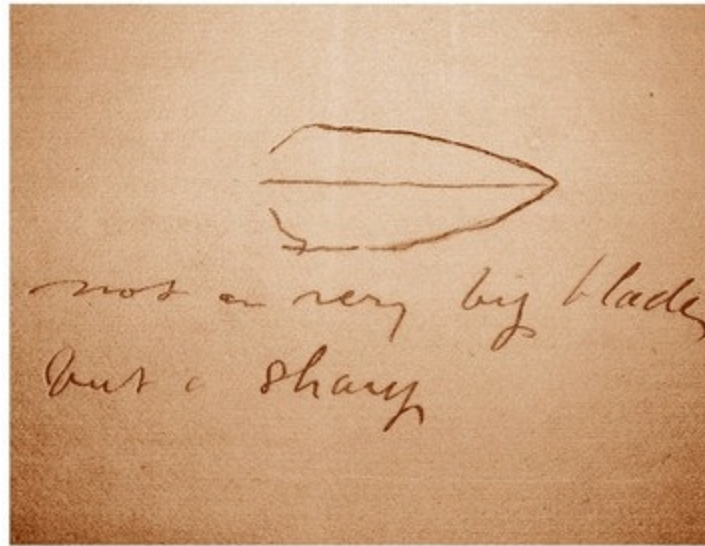 not a very big blade
but a sharp